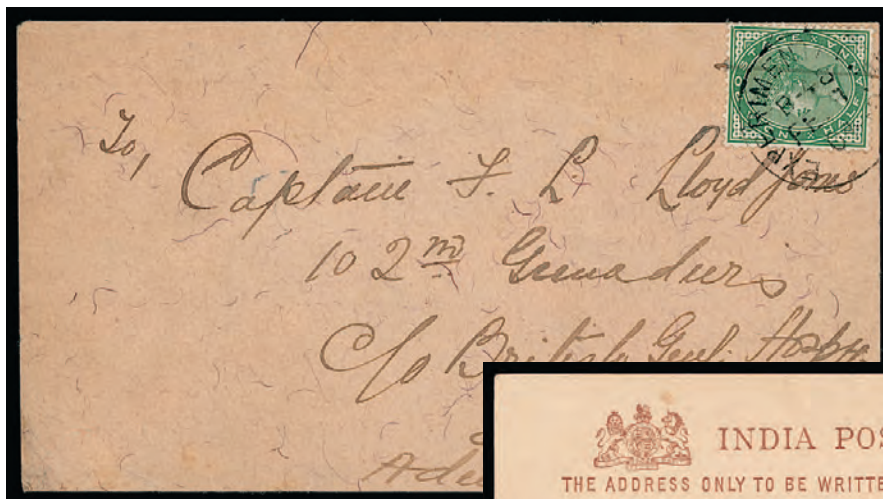 To,
Captain F. L. Lloyd Jones
102nd Grenadiers
C/o British Genl. Hosp
Ade
HALF ANNA
EXPERIMEN
INDIA POS
THE ADDRESS ONLY TO BE WRITTE